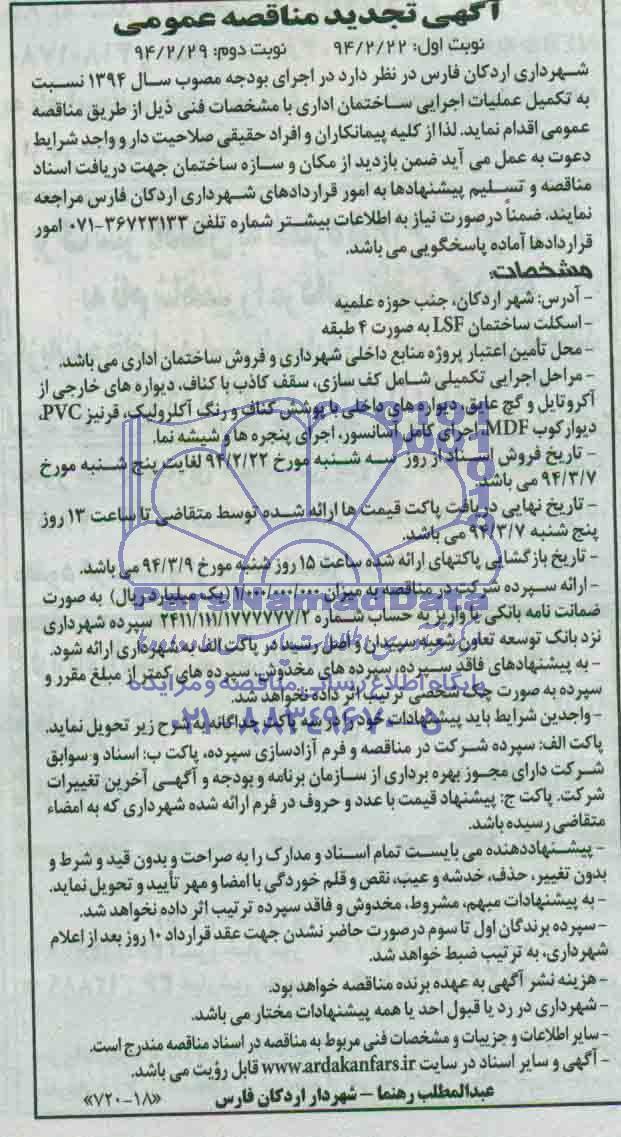 آگهی تجدید مناقصه عمومی
نوبت اول: ۹۴/۲/۲۲ نوبت دوم: ۹۴/۲/۲۹
شهرداری اردکان فارس در نظر دارد در اجرای بودجه مصوب سال ۱۳۹۴ نسبت
به تکمیل عملیات اجرایی ساختمان اداری با مشخصات فنی ذیل از طریق مناقصه
عمومی اقدام نماید. لذا از کلیه پیمانکاران و افراد حقیقی صلاحیت دار و واجد شرایط
دعوت به عمل می آید ضمن بازدید از مکان و سازه ساختمان جهت دریافت اسناد
مناقصه و تسلیم پیشنهادها به امور قراردادهای شهرداری اردکان فارس مراجعه
نمایند. ضمناً درصورت نیاز به اطلاعات بیشتر شماره تلفن ۳۶۷۲۳۱۳۳-۰۷۱ امور
قراردادها آماده پاسخگویی می باشد.
مشخصات:
- آدرس: شهر اردکان، جنب حوزه علمیه
- اسکلت ساختمان LSF به صورت ۴ طبقه
- محل تأمین اعتبار پروژه منابع داخلی شهرداری و فروش ساختمان اداری می باشد.
- مراحل اجرایی تکمیلی شامل کف سازی، سقف کاذب با کناف، دیواره های خارجی از
آکروتایل و گچ عایق، دیواره های داخلی با پوشش کناف و رنگ آکلرولیک، قرنیز PVC،
دیوارکوب MDF، اجرای کامل آسانسور، اجرای پنجره ها و شیشه نما.
- تاریخ فروش اسناد از روز سه شنبه مورخ ۹۴/۲/۲۲ لغایت پنج شنبه مورخ
۹۴/۳/۷ می باشد.
- تاریخ نهایی دریافت پاکت قیمت ها ارائه شده توسط متقاضی تا ساعت ۱۳ روز
پنج شنبه ۹۴/۳/۷ می باشد.
- تاریخ بازگشایی پاکتهای ارائه شده ساعت ۱۵ روز شنبه مورخ ۹۴/۳/۹ می باشد.
- ارائه سپرده شرکت در مناقصه به میزان ۱/۰۰۰/۰۰۰/۰۰۰ (یک میلیارد ریال) به صورت
ضمانت نامه بانکی یا واریز به حساب شماره ۲۴۱۱/۱۱۱/۱۷۷۷۷۷۷/۲ سپرده شهرداری
نزد بانک توسعه تعاون شعبه سپیدان و اصل رسید در پاکت الف به شهرداری ارائه شود.
- به پیشنهادهای فاقد سپرده، سپرده های مخدوش، سپرده های کمتر از مبلغ مقرر و
سپرده به صورت چک شخصی ترتیب اثر داده نخواهد شد.
- واجدین شرایط باید پیشنهادات خود را در سه پاکت جداگانه به شرح زیر تحویل نماید.
پاکت الف: سپرده شرکت در مناقصه و فرم آزادسازی سپرده، پاکت ب: اسناد و سوابق
شرکت دارای مجوز بهره برداری از سازمان برنامه و بودجه و آگهی آخرین تغییرات
شرکت. پاکت ج: پیشنهاد قیمت با عدد و حروف در فرم ارائه شده شهرداری که به امضاء
متقاضی رسیده باشد.
- پیشنهاددهنده می بایست تمام اسناد و مدارک را به صراحت و بدون قید و شرط و
بدون تغییر، حذف، خدشه و عیب، نقص و قلم خوردگی با امضا و مهر تأیید و تحویل نماید.
- به پیشنهادات مبهم، مشروط، مخدوش و فاقد سپرده ترتیب اثر داده نخواهد شد.
- سپرده برندگان اول تا سوم درصورت حاضر نشدن جهت عقد قرارداد ۱۰ روز بعد از اعلام
شهرداری، به ترتیب ضبط خواهد شد.
- هزینه نشر آگهی به عهده برنده مناقصه خواهد بود.
- شهرداری در رد یا قبول احد یا همه پیشنهادات مختار می باشد.
- سایر اطلاعات و جزییات و مشخصات فنی مربوط به مناقصه در اسناد مناقصه مندرج است.
- آگهی و سایر اسناد در سایت www.ardakanfars.ir قابل رؤیت می باشد.
عبدالمطلب رهنما - شهردار اردکان فارس «۷۲۰-۱۸»
ParsNamadData
پایگاه اطلاع رسانی مناقصه و مزایده
۰۲۱-۸۸۳۴۹۶۷۰-۵